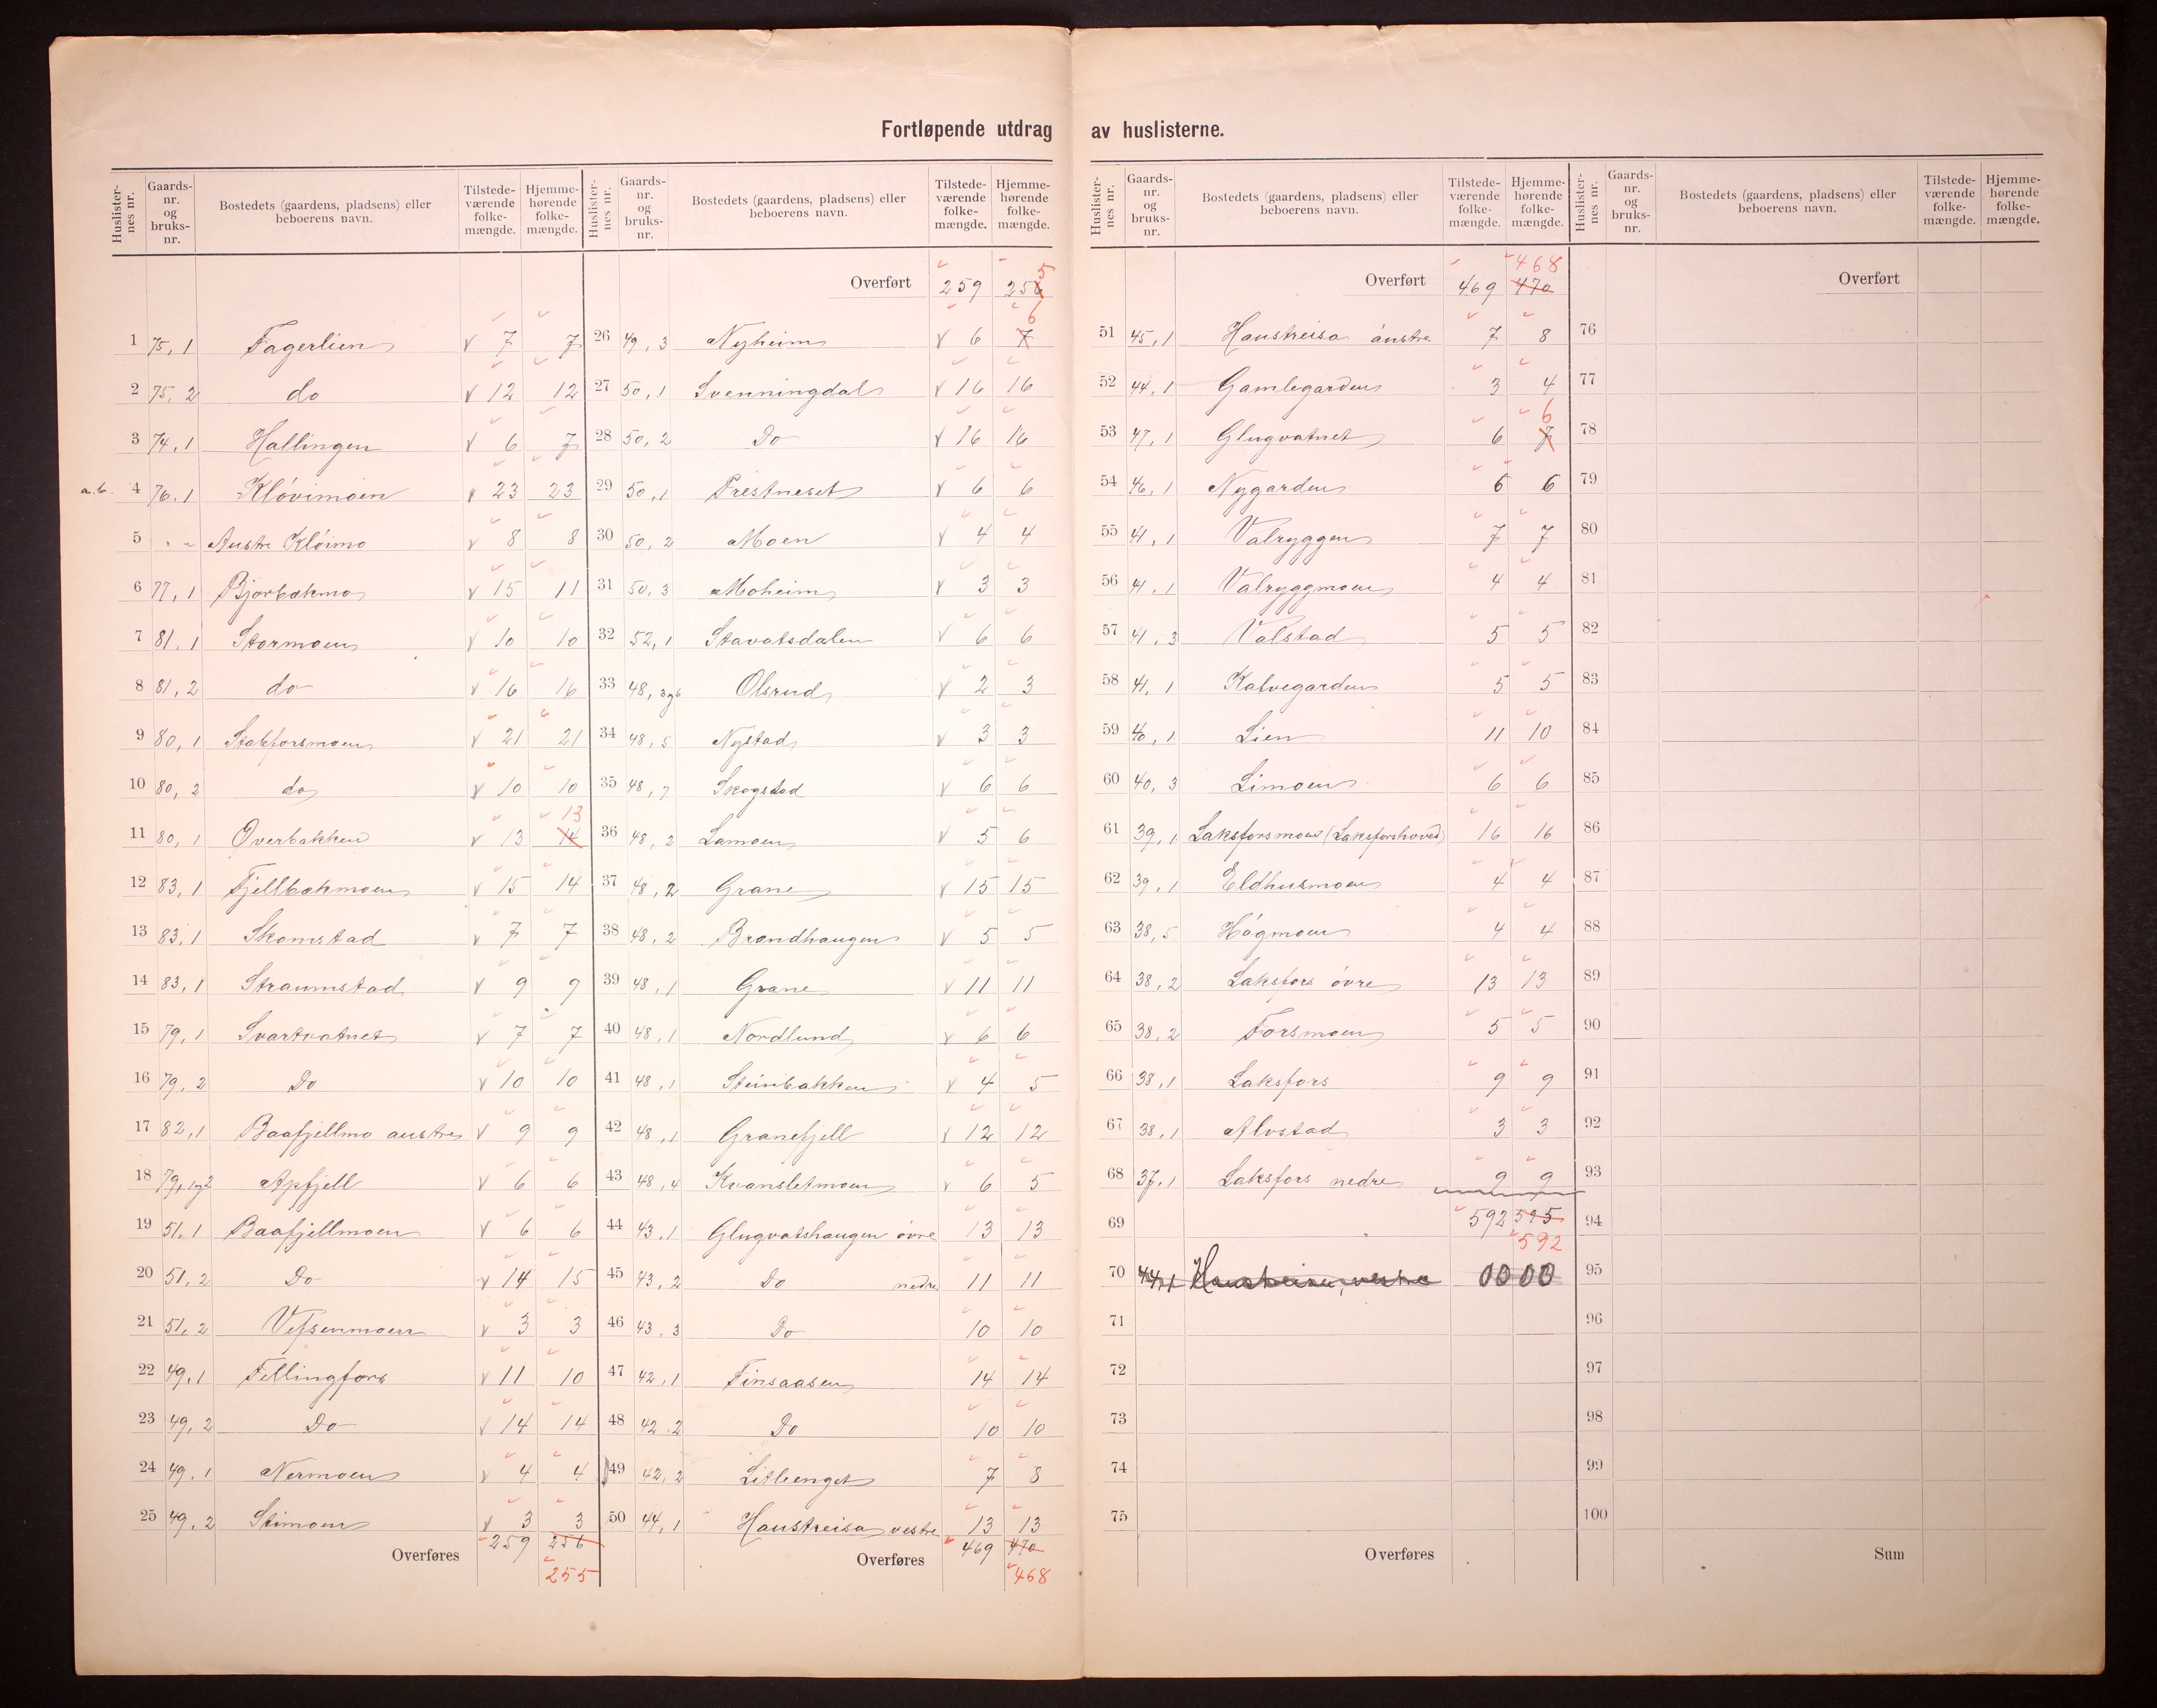 Fortløpende utdrag av huslisterne.
Huslisternes nr. Gaardsnr. og bruksnr. Bostedets (gaardens, pladsens) eller beboerens navn. Tilstedeværende folkemængde. Hjemmehørende folkemængde.
1 75,1 Fagerlien 7 7
2 75,2 do 12 12
3 74,1 Hallingen 6 7
a.b. 4 76,1 Kløvimoen 23 23
5 " " Austre Kløimo 8 8
6 77,1 Bjørbækmo 15 11
7 81,1 Stormoen 10 10
8 81,2 do 16 16
9 80,1 Stabforsmoen 21 21
10 80,2 do 10 10
11 80,1 Øverbakken 13 14 13
12 83,1 Fjellbækmoen 15 14
13 83,1 Skomstad 7 7
14 83,1 Straumstad 9 9
15 79,1 Svartvatnet 7 7
16 79,2 Do 10 10
17 82,1 Baafjellmo austre 9 9
18 79,1og2 Apfjell 6 6
19 51,1 Baafjellmoen 6 6
20 51,2 Do 14 15
21 51,2 Vefsenmoen 3 3
22 49,1 Fellingfors 11 10
23 49,2 Do 14 14
24 49,1 Nermoen 4 4
25 49,2 Stimoen 3 3
Overføres 259 256
255
Huslisternes nr. Gaardsnr. og bruksnr. Bostedets (gaardens, pladsens) eller beboerens navn. Tilstedeværende folkemængde. Hjemmehørende folkemængde.
Overført 259 256 5
26 49,3 Nyheim 6 7 6
27 50,1 Svenningdal 16 16
28 50,2 Do 16 16
29 50,1 Prestneset 6 6
30 50,2 Moen 4 4
31 50,3 Moheim 3 3
32 52,1 Stavatsdalen 6 6
33 48,3og6 Olsrud 2 3
34 48,5 Nystad 3 3
35 48,7 Skogstad 6 6
36 48,2 Lamoen 5 6
37 48,2 Grane 15 15
38 48,2 Brændhaugen 5 5
39 48,1 Grane 11 11
40 48,1 Nordlund 6 6
41 48,1 Steinbakken 4 5
42 48,1 Granefjell 12 12
43 48,4 Kvansletmoen 6 5
44 43,1 Glugvatshaugen øvre 13 13
45 43,2 Do nedre 11 11
46 43,3 Do 10 10
47 42,1 Finsaasen 14 14
48 42,2 Do 10 10
49 42,2 Litleenget 7 8
50 44,1 Haustreisa vestre 13 13
Overføres 469 470
468
Huslisternes nr. Gaardsnr. og bruksnr. Bostedets (gaardens, pladsens) eller beboerens navn. Tilstedeværende folkemængde. Hjemmehørende folkemængde.
468
Overført 469 470
51 45,1 Haustreisa austre 7 8
52 44,1 Gamlegarden 3 4
53 47,1 Glugvatnet 6 7 6
54 46,1 Nygarden 6 6
55 41,1 Valryggen 7 7
56 41,1 Valryggmoen 4 4
57 41,3 Valstad 5 5
58 41,1 Kalvegarden 5 5
59 40,1 Lien 11 10
60 40,3 Limoen 6 6
61 39,1 Laksforsmoen (Laksforshoved) 16 16
62 39,1 Eldhusmoen 4 4
63 38,5 Høgmoen 4 4
64 38,2 Laksfors øvre 13 13
65 38,2 Forsmoen 5 5
66 38,1 Laksfors 9 9
67 38,1 Alvstad 3 3
68 37,1 Laksfors nedre 9 9
69 592 595
592
70 44,1 Haustreisa, vestre 00 00
71
72
73
74
75
Overføres
Huslisternes nr. Gaardsnr. og bruksnr. Bostedets (gaardens, pladsens) eller beboerens navn. Tilstedeværende folkemængde. Hjemmehørende folkemængde.
Overført
76
77
78
79
80
81
82
83
84
85
86
87
88
89
90
91
92
93
94
95
96
97
98
99
100
Sum